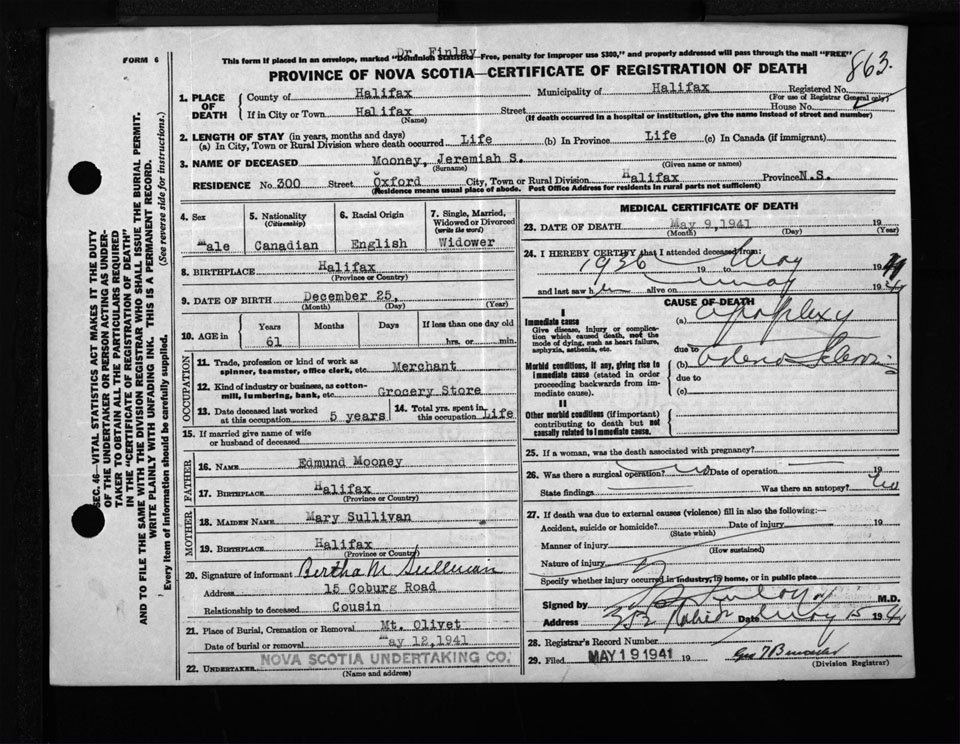 Dr. Finlay
FORM 6
This form if placed in an envelope, marked "Dominion Statistics—Free, penalty for improper use $300," and properly addressed will pass through the mail "FREE"
863.
PROVINCE OF NOVA SCOTIA—CERTIFICATE OF REGISTRATION OF DEATH
1. PLACE OF DEATH
County of Halifax Municipality of Halifax Registered No.
(For use of Registrar General only)
If in City or Town Halifax Street House No.
(Name) (If death occurred in a hospital or institution, give the name instead of street and number)
2. LENGTH OF STAY (in years, months and days)
(a) In City, Town or Rural Division where death occurred Life (b) In Province Life (c) In Canada (if immigrant)
3. NAME OF DECEASED Mooney, Jeremiah S.
(Surname) (Given name or names)
RESIDENCE No. 300 Street Oxford City, Town or Rural Division Halifax Province N.S.
(Residence means usual place of abode. Post Office Address for residents in rural parts not sufficient)
SEC. 46—VITAL STATISTICS ACT MAKES IT THE DUTY
OF THE UNDERTAKER OR PERSON ACTING AS UNDER-
TAKER TO OBTAIN ALL THE PARTICULARS REQUIRED
IN THE "CERTIFICATE OF REGISTRATION OF DEATH"
AND TO FILE THE SAME WITH THE DIVISION REGISTRAR WHO SHALL ISSUE THE BURIAL PERMIT.
WRITE PLAINLY WITH UNFADING INK. THIS IS A PERMANENT RECORD.
Every item of information should be carefully supplied. (See reverse side for instructions.)
4. Sex
Male
5. Nationality
(Citizenship)
Canadian
6. Racial Origin
English
7. Single, Married,
Widowed or Divorced
(write the word)
Widower
8. BIRTHPLACE Halifax
(Province or Country)
9. DATE OF BIRTH December 25,
(Month) (Day) (Year)
10. AGE in
Years Months Days If less than one day old
61 hrs. or min.
OCCUPATION
11. Trade, profession or kind of work as
spinner, teamster, office clerk, etc. Merchant
12. Kind of industry or business, as cotton-
mill, lumbering, bank, etc. Grocery Store
13. Date deceased last worked
at this occupation 5 years
14. Total yrs. spent in
this occupation Life
15. If married give name of wife
or husband of deceased
FATHER
16. NAME Edmund Mooney
17. BIRTHPLACE Halifax
(Province or Country)
MOTHER
18. MAIDEN NAME Mary Sullivan
19. BIRTHPLACE Halifax
(Province or Country)
20. Signature of informant Bertha M Sullivan
Address 15 Coburg Road
Relationship to deceased Cousin
21. Place of Burial, Cremation or Removal Mt. Olivet
Date of burial or removal May 12,1941
22. UNDERTAKER NOVA SCOTIA UNDERTAKING CO.
(Name and address)
MEDICAL CERTIFICATE OF DEATH
23. DATE OF DEATH May 9,1941 19
(Month) (Day) (Year)
24. I HEREBY CERTIFY that I attended deceased from:
1936 19 to May 19 41
and last saw h alive on May 19 41
CAUSE OF DEATH
I
Immediate cause
Give disease, injury or complica-
tion which caused death, not the
mode of dying, such as heart failure,
asphyxia, asthenia, etc.
(a) Apoplexy
due to
Morbid conditions, if any, giving rise to
immediate cause (stated in order
proceeding backwards from im-
mediate cause).
(b)
due to
(c)
II
Other morbid conditions (if important)
contributing to death but not
causally related to immediate cause.
25. If a woman, was the death associated with pregnancy?
26. Was there a surgical operation? No Date of operation 19
State findings Was there an autopsy? No
27. If death was due to external causes (violence) fill in also the following:—
Accident, suicide or homicide? Date of injury 19
(State which)
Manner of injury
(How sustained)
Nature of injury
Specify whether injury occurred in industry, in home, or in public place
Signed by Finlay M.D.
Address Date May 15 19 41
28. Registrar's Record Number
29. Filed MAY 19 1941 19
(Division Registrar)